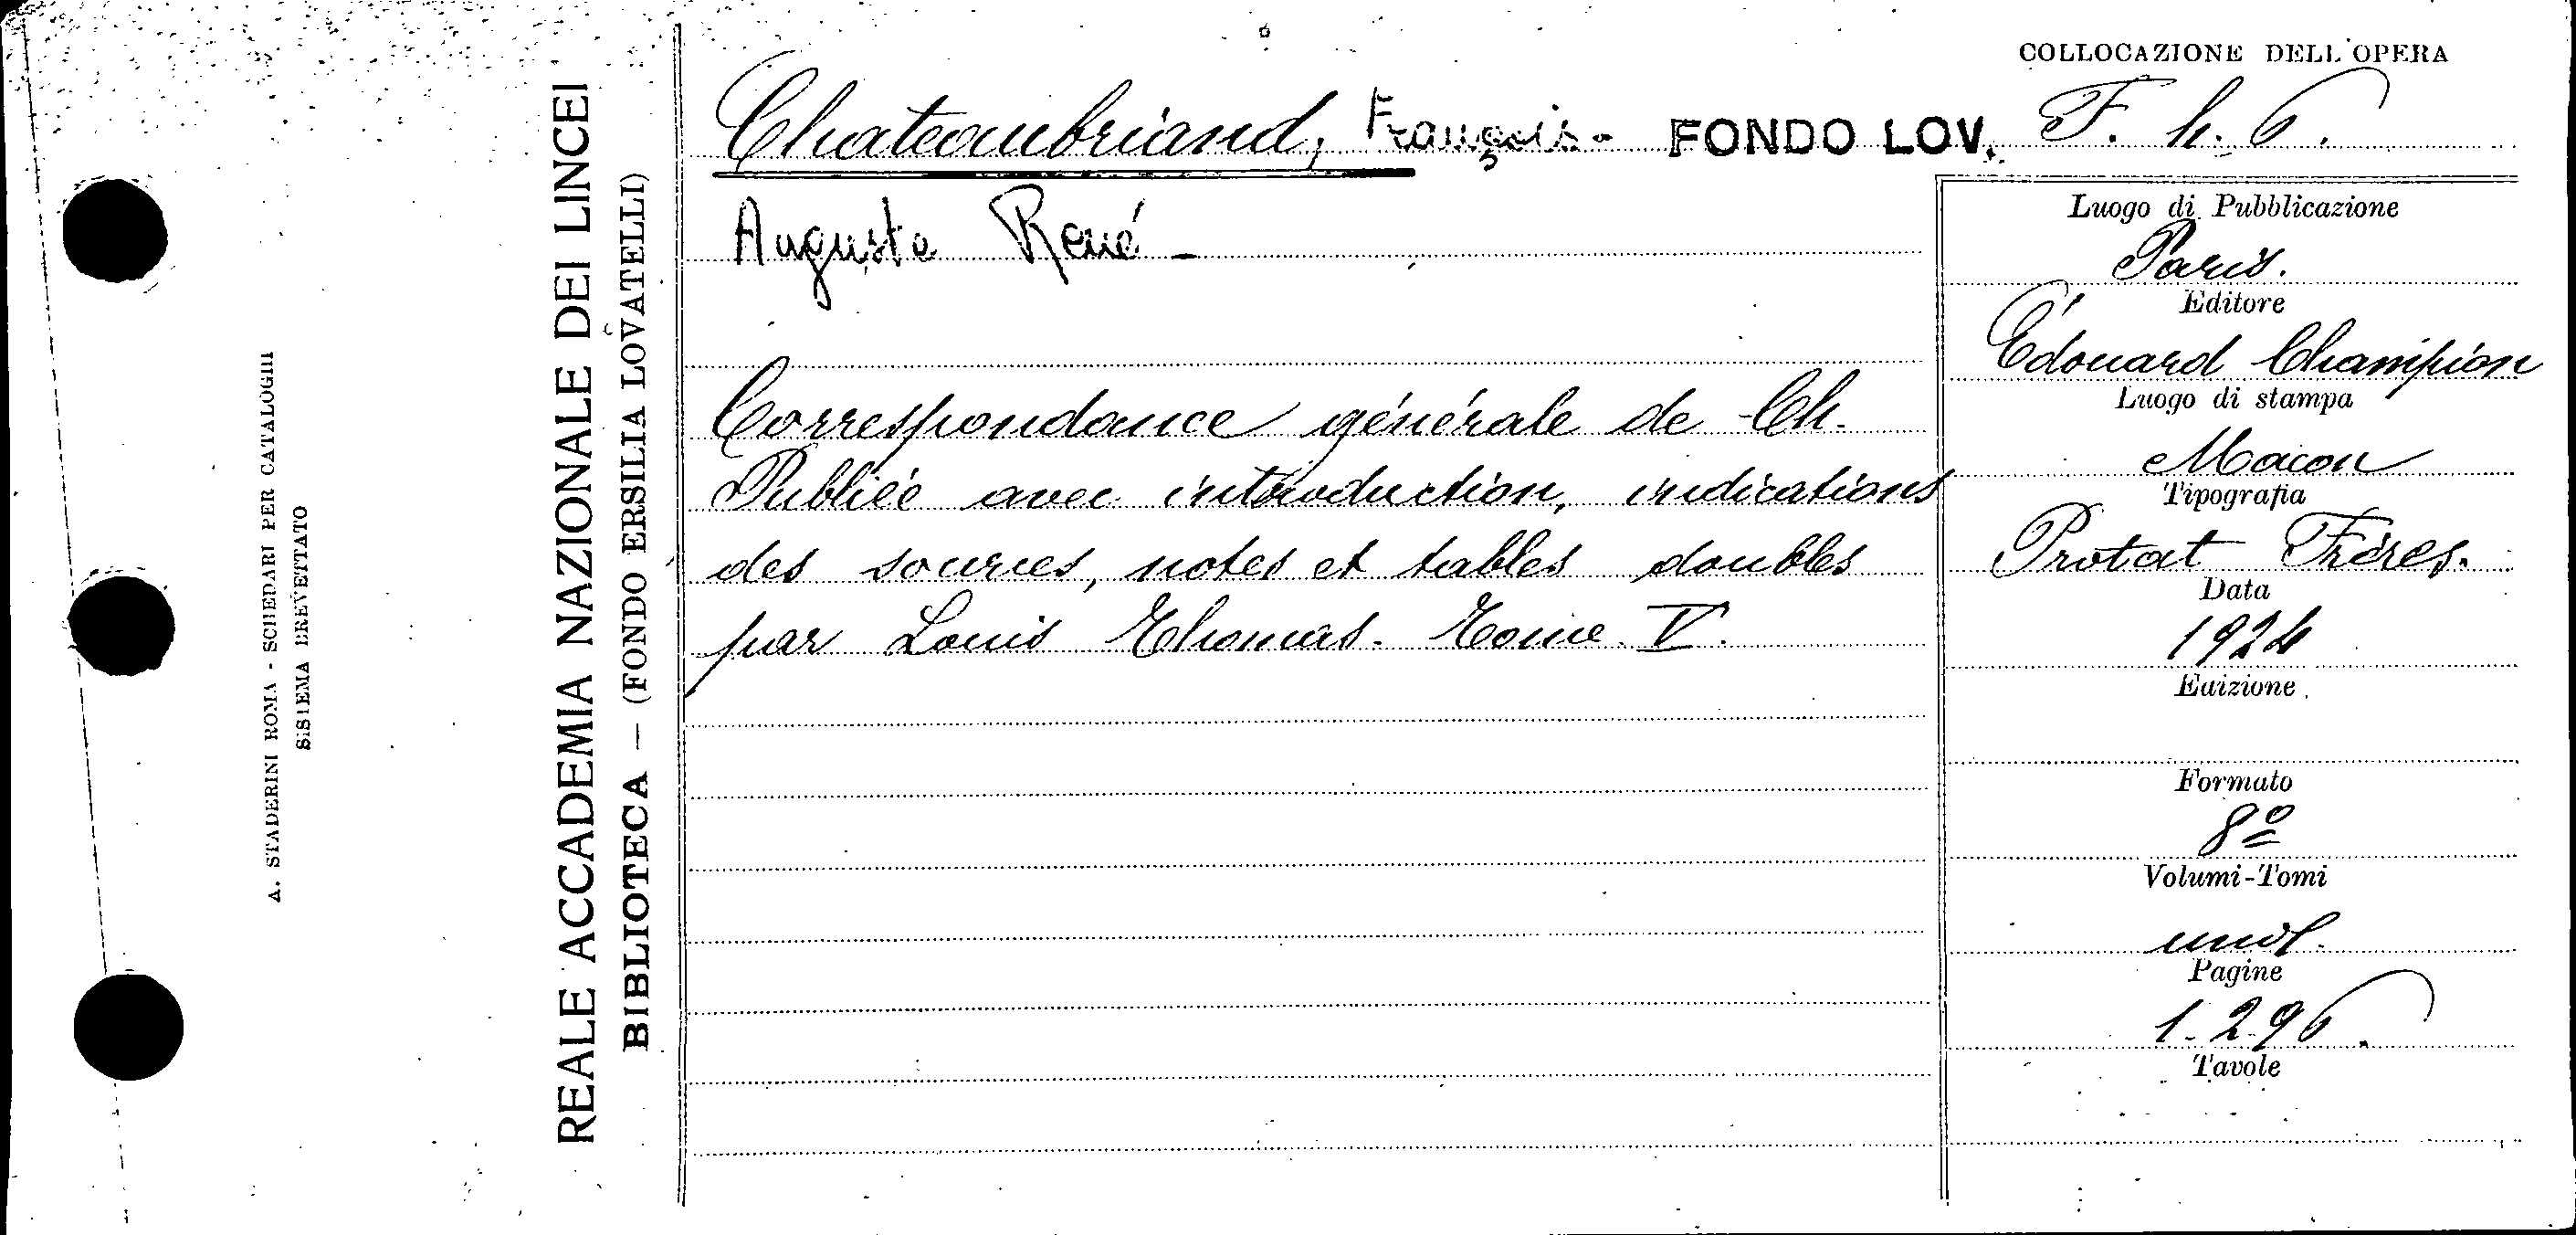 COLLOCAZIONE DELL'OPERA
Chateaubriand, François- FONDO LOV. F. h. 6.
Auguste René -
Correspondance générale de Ch.
Publiée avec introduction, indications
des sources, notes et tables doubles
par Louis Thomas. Tome V.
Luogo di Pubblicazione
Paris.
Editore
Édouard Champion
Luogo di stampa
Macon
Tipografia
Protat Frères.
Data
1924
Edizione
Formato
8º
Volumi-Tomi
Pagine
1-296.
Tavole
REALE ACCADEMIA NAZIONALE DEI LINCEI
BIBLIOTECA — (FONDO ERSILIA LOVATELLI)
A. STADERINI ROMA - SCHEDARI PER CATALOGHI
SISTEMA BREVETTATO